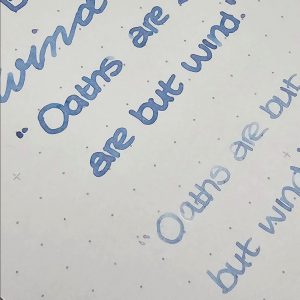 wind
"Oaths are
are but wind."
"Oaths are but
but wind."